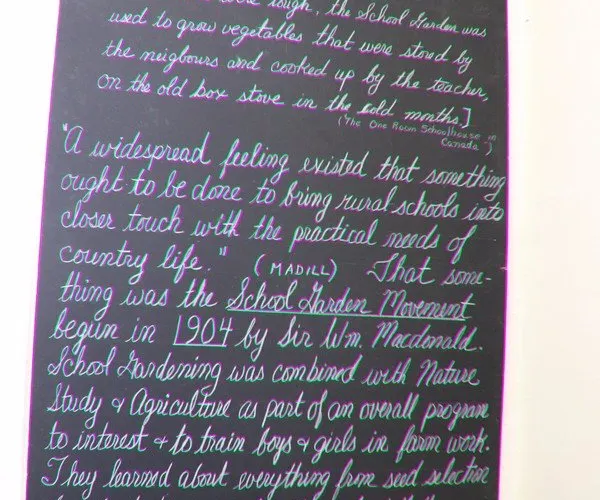 were rough, the School Garden was
used to grow vegetables that were stored by
the neigbours and cooked up by the teacher,
on the old box stove in the cold months.]
(The One Room Schoolhouse in
Canada)
"A widespread feeling existed that something
ought to be done to bring rural schools into
closer touch with the practical needs of
country life." (MADILL) That some-
thing was the School Garden Movement
begun in 1904 by Sir Wm. Macdonald.
School Gardening was combined with Nature
Study & Agriculture as part of an overall program
to interest & to train boys & girls in farm work.
They learned about everything from seed selection